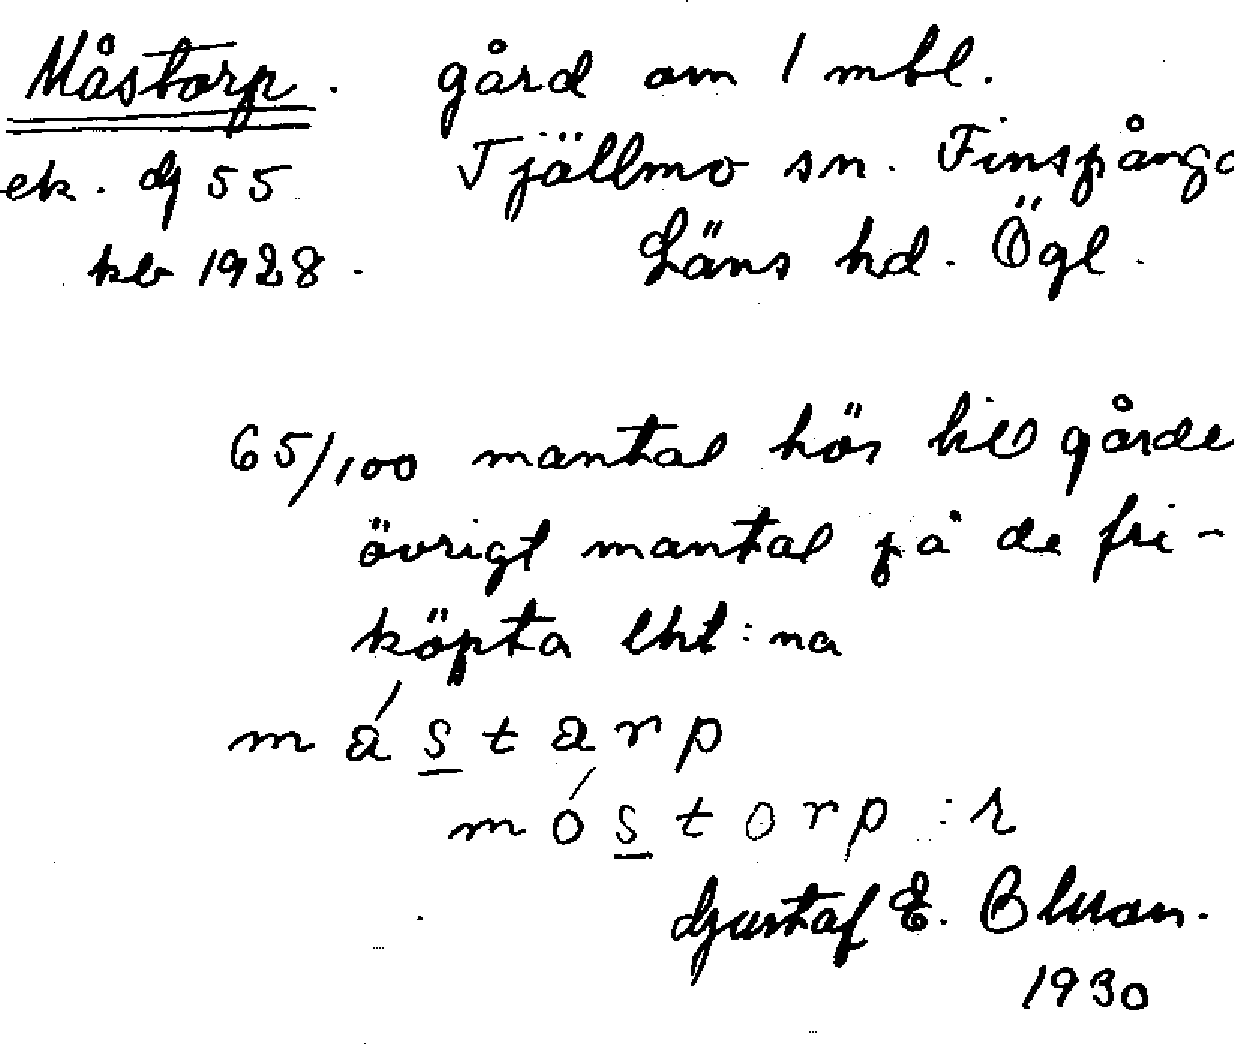 Måstorp. gård om 1 mtl.
ek. dj 55 Tjällmo sn. Finspånga
kb 1928. Läns hd. Ögl.
65/100 mantal hör till gårde
övrigt mantal på de fri-
köpta lht:na
mást a r p
móst o r p :r
Gustaf E.
1930